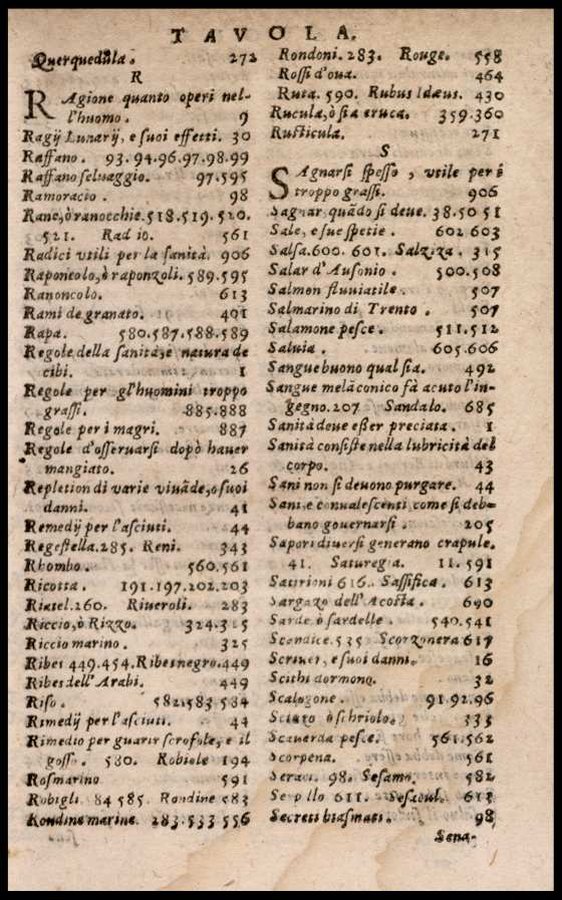 TAVOLA.
Querquedula. 272
R
RAgione quanto operi nel-
l'huomo. 9
Ragij Lunarij, e suoi effetti. 30
Raffano. 93.94.96.97.98.99
Raffano seluaggio. 97.595
Ramoracio. 98
Rane, ò ranocchie. 518.519.520.
521. Radio. 561
Radici vtili per la sanità. 906
Raponcolo, ò raponzoli. 589.595
Ranoncolo. 613
Rami de granato. 401
Rapa. 580.587.588.589
Regole della sanità, e natura de
cibi. 1
Regole per gl'huomini troppo
grassi. 885.888
Regole per i magri. 887
Regole d'osseruarsi dopò hauer
mangiato. 26
Repletion di varie viuãde, o suoi
danni. 41
Remedij per l'asciuti. 44
Regestella. 285. Reni. 343
Rhombo. 560.561
Ricotta. 191.197.202.203
260. Riueroli. 283
Riccio, ò Rizzo. 324.315
Riccio marino. 325
Ribes 449.454. Ribes negro. 449
Ribes dell'Arabi. 449
Riso. 582.583.584
Rimedij per l'asciuti. 44
Rimedio per guarir scrofole, e il
gosso. 580. Robiole 194
Rosmarino 591
Robigli. 84 585. Rondine 583
Rondine marine. 283.533 556
Rondoni. 283. Rouge. 558
Rossi d'oua. 464
Ruta. 590. Rubus Idæus. 430
Rucula, ò sia eruca. 359.360
Rusticula. 271
S
SAgnarsi spesso, vtile per i
troppo grassi. 906
Sagnar, quãdo si deue. 38.50 51
Sale, e sue spetie. 602 603
Salsa. 600. 601. Salziza. 315
Salar d'Ausonio. 500.508
Salmon fluuiatile. 507
Salmarino di Trento. 507
Salamone pesce. 511.512
Saluia. 605.606
Sangue buono qual sia. 492
Sangue melãconico fà acuto l'in-
gegno. 207 Sandalo. 685
Sanità doue esser preciata. 1
Sanità consiste nella lubricità del
corpo. 43
Sani non si deuono purgare. 44
Sani, e conualescenti come si deb-
bano gouernarsi. 205
Sapori diuersi generano crapule.
41. Saturegia. 11.591
Satirioni 616. Sassifica. 613
Sargazo dell'Acosta. 690
Sarde ò sardelle. 540.541
Scandice. 535 Scorzonera 617
e suoi danni. 16
Scithi dormono. 32
Scalogone. 91.92.96
ò schriolo. 335
Scauerda pesce. 561.562
Scorpena. 561
98. Sesamo. 582
611. 613
Secreti biasmati. 98
Sena-